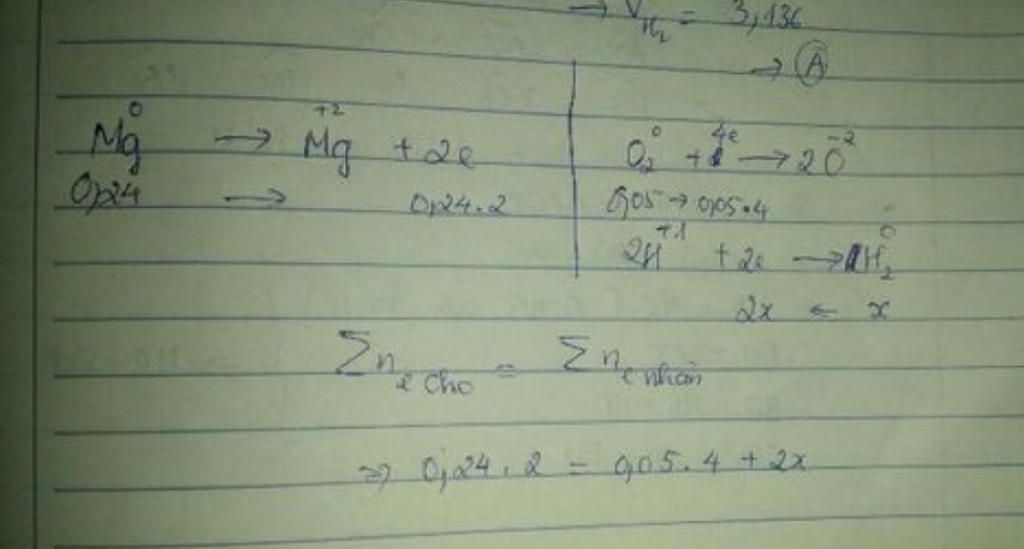 → V_H₂ = 3,136
→ Ⓐ
Mg⁰ → Mg⁺² + 2e
0,24 → 0,24.2
O₂⁰ + 4e → 2O⁻²
0,05 → 0,05.4
2H⁺¹ + 2e → H₂⁰
2x ← x
∑n e cho = ∑n e nhận
⇒ 0,24.2 = 0,05.4 + 2x